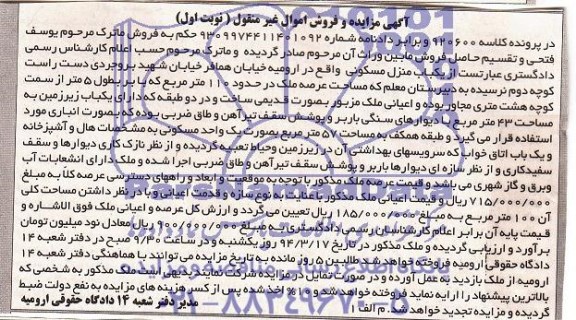 آگهی مزایده و فروش اموال غیر منقول (نوبت اول)
در پرونده کلاسه ۹۲۰۶۰۰ و برابر دادنامه شماره ۹۳۰۹۹۷۴۴۱۱۴۰۱۰۹۲ حکم به فروش ماترک مرحوم یوسف
فتحی و تقسیم حاصل فروش مابین وراث آن مرحوم صادر گردیده و ماترک مرحوم حسب اعلام کارشناس رسمی
دادگستری عبارتست از یکباب منزل مسکونی واقع در ارومیه خیابان همافر خیابان شهید بروجردی دست راست
کوچه دوم نرسیده به دبیرستان معلم که مساحت عرصه ملک در حدود ۱۱۰ متر مربع که با بر بطول ۵ متر از سمت
کوچه هشت متری مجاور بوده و اعیانی ملک مزبور بصورت قدیمی ساخت و در دو طبقه که دارای یکباب زیرزمین به
مساحت ۴۳ متر مربع با دیوارهای سنگی باربر و پوشش سقف تیرآهن و طاق ضربی بوده که بصورت انباری مورد
استفاده قرار می گیرد و طبقه همکف به مساحت ۵۷ متر مربع بصورت یک واحد مسکونی به مشخصات هال و آشپزخانه
و یک باب اتاق خواب که سرویسهای بهداشتی آن در زیرزمین وحیاط تعبیه گردیده و از نظر نازک کاری دیوارها و سقف
سفیدکاری و از نظر سازه ای دیوارها باربر و پوشش سقف تیرآهن و طاق ضربی اجرا شده و ملک دارای انشعابات آب
وبرق و گاز شهری می باشد و قیمت عرصه ملک مذکور با توجه به موقعیت و ابعاد و راههای دسترسی عرصه کلاً به مبلغ
۷۱۵/۰۰۰/۰۰۰ ریال و قیمت اعیانی ملک مذکور با عنایت به نوع سازه و قدمت اعیانی و با در نظر داشتن مساحت کلی
آن ۱۰۰ متر مربع به مبلغ ۱۸۵/۰۰۰/۰۰۰ ریال تعیین می گردد و ارزش کل عرصه و اعیانی ملک فوق الاشاره و
قیمت پایه آن برابر اعلام کارشناس رسمی دادگستری به مبلغ ریال معادل نود میلیون تومان
برآورد و ارزیابی گردیده و ملک مذکور در تاریخ ۹۴/۳/۱۷ روز یکشنبه و در ساعت ۹/۳۰ صبح در دفتر شعبه ۱۴
دادگاه حقوقی ارومیه فروخته خواهد شد طالبین ۵ روز مانده به تاریخ مزایده می توانند با هماهنگی دفتر شعبه ۱۴
ارومیه از ملک بازدید به عمل آورده و در صورت تمایل در مزایده شرکت نمایند بدیهی است ملک مذکور به شخصی که
بالاترین پیشنهاد را ارایه نماید فروخته خواهد شد و ۱۰٪ اخذ شده پس از کسر هزینه های مزایده به نفع دولت ضبط
گردیده و مزایده تجدید خواهد شد. م الف ۱
مدیر دفتر شعبه ۱۴ دادگاه حقوقی ارومیه
۰۲۱-۸۸۳۴۹۶۷۰-۵